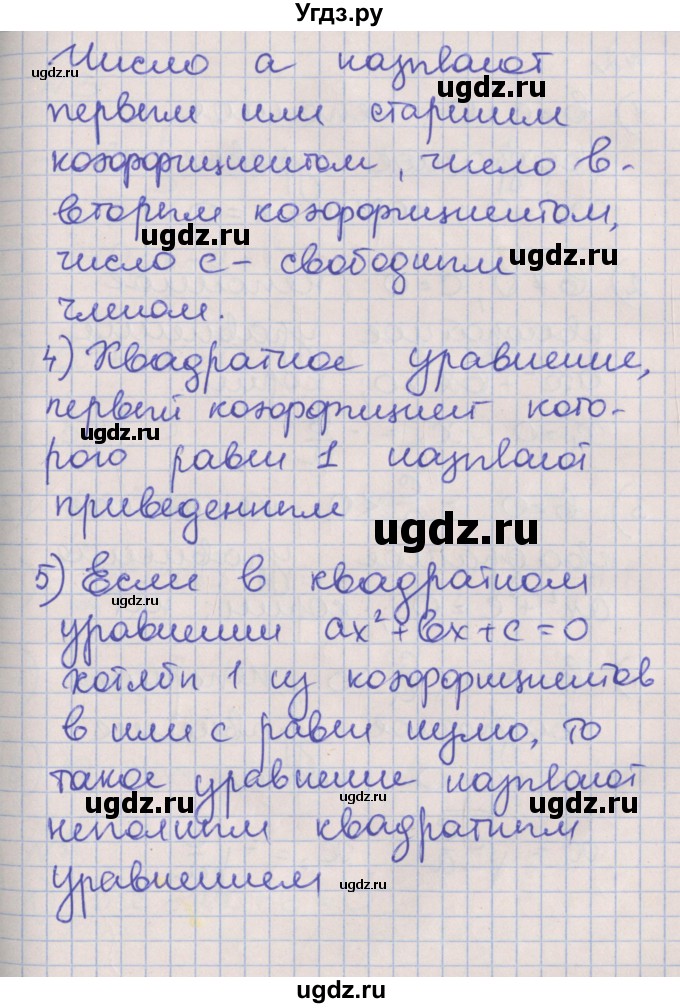 Угдз.ру
Число a называют
ugdz.ru
ugdz.ru
первым или старшим
коэффициентом, число в-
вторым коэффициентом,
ugdz.ru
ugdz.ru
число c - свободным
членом.
4) Квадратное уравнение,
первый коэффициент кото-
ugdz.ru
рого равен 1 называют
приведенным
ugdz.ru
5) Если в квадратном
ugdz.ru
уравнении ax²+вx+c=0
хотябы 1 из коэффициентов
в или c равен нулю, то
такое уравнение называют
ugdz.ru
ugdz.ru
ugdz.ru
неполным квадратным
уравнением
ugdz.ru
ugdz.ru